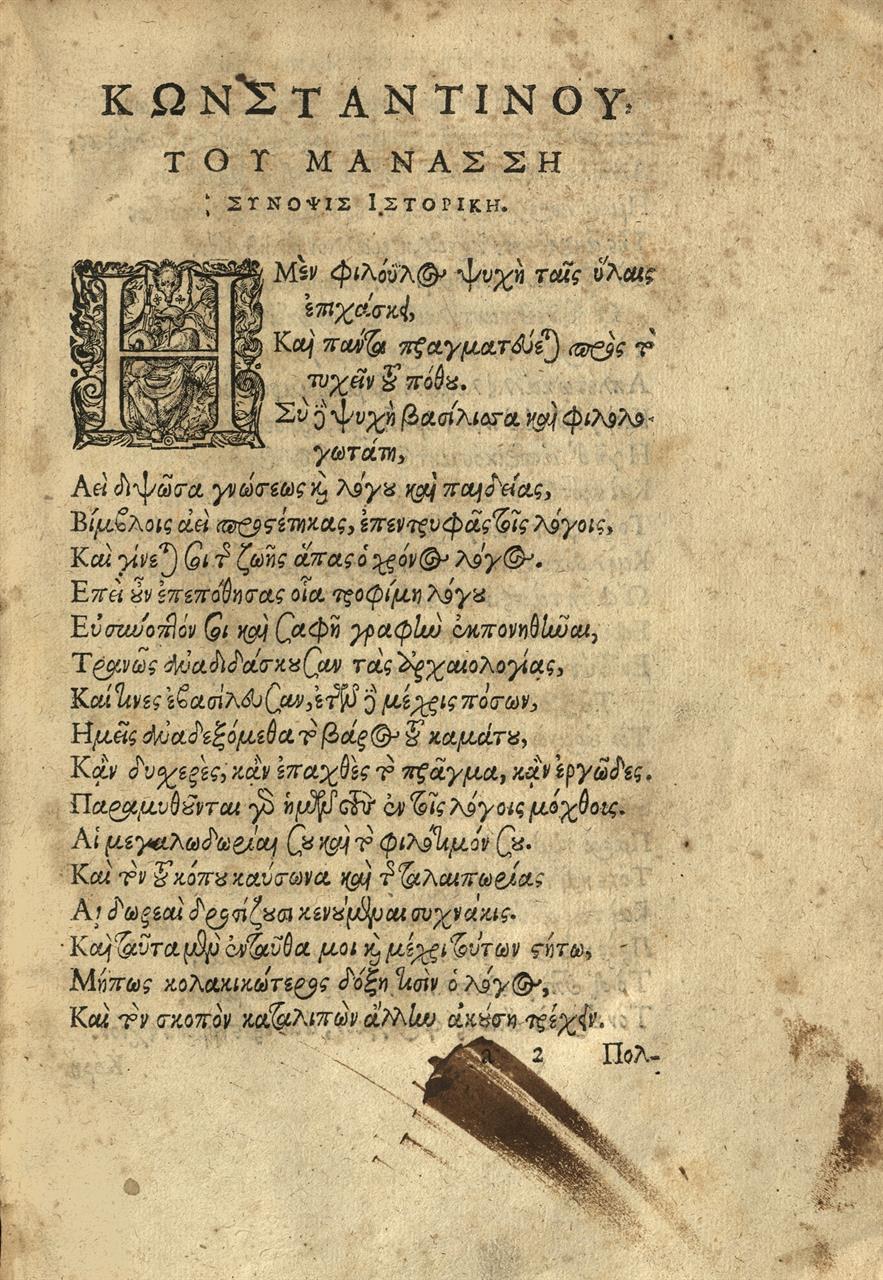 ΚΩΝΣΤΑΝΤΙΝΟΥ
ΤΟΥ ΜΑΝΑΣΣΗ
ΣΥΝΟΨΙΣ ΙΣΤΟΡΙΚΗ.
Η Μὲν φιλόϋλος ψυχὴ ταῖς ὕλαις
ἐπιχάσκει,
Καὶ πάντα πραγματεύεται πρὸς τὸ
τυχεῖν τοῦ πόθου.
Σὺ δὲ ψυχὴ βασίλισσα καὶ φιλολο-
γωτάτη,
Αεὶ διψῶσα γνώσεως καὶ λόγου καὶ παιδείας,
Βίμβλοις ἀεὶ προςέτηκας, ἐπεντρυφᾷς τοῖς λόγοις,
Καὶ γίνεταί σοι τῆς ζωῆς ἅπας ὁ χρόνος λόγος.
Επεὶ οὖν ἐπεπόθησας οἷα τροφίμη λόγου
Εὐσύνοπτόν σοι καὶ σαφῆ γραφὴν ἐκπονηθῆναι,
Τρανῶς ἀναδιδάσκουσαν τὰς ἀρχαιολογίας,
Καὶ τίνες ἐβασίλευσαν, ἐτῶν δὲ μέχρις πόσων,
Ημεῖς ἀναδεξόμεθα τὸ βάρος τοῦ καμάτου,
Κᾂν δυχερὲς, κᾂν ἐπαχθὲς τὸ πρᾶγμα, κᾂν ἐργῶδες.
Παραμυθοῦνται γὰρ ἡμῶν τοὺς ἐν τοῖς λόγοις μόχθοις.
Αἱ μεγαλωδωρίαι σου καὶ τὸ φιλότιμόν σου.
Καὶ τὸν τοῦ κόπου καύσωνα καὶ τῆς ταλαιπωρίας
Αἱ δωρεαὶ δροσίζουσι κενούμεναι συχνάκις.
Καὶ ταῦτα μὲν ἐνταῦθα μοι καὶ μέχρι τούτων στήτω,
Μήπως κολακικώτερος δόξῃ τισὶν ὁ λόγος,
Καὶ τὸν σκοπὸν καταλιπὼν ἄλλην ἀκούσῃ τρέχειν.
a 2 Πολ-